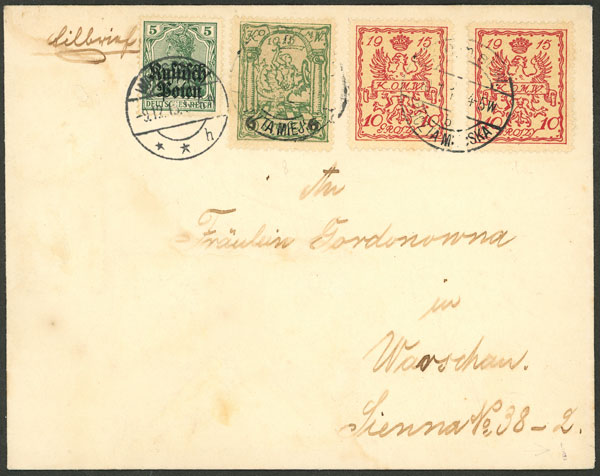 Eilbrief
5 5
Russisch-
Polen
DEUTSCHES REICH
h
KO M W
6 6
TA MIEJSK
1915
K.O.M.W.
10 GROSZY 10
1915
K.O.M.W.
10 GROSZY 10
TA MI SKA
An
Fräulein Gordonowna
in
Warschau.
Sienna No. 38-2.